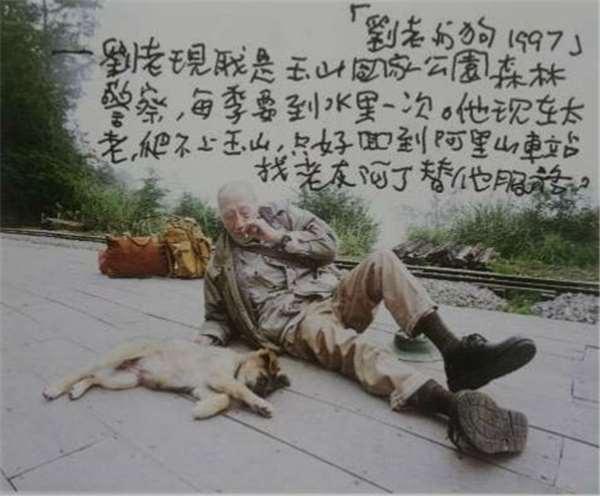 「劉老与狗1997」
一劉老現職是玉山國家公園森林
警察,每季要到水里一次。他现在太
老,爬不上玉山,只好回到阿里山車站
找老友阿丁替他服務。